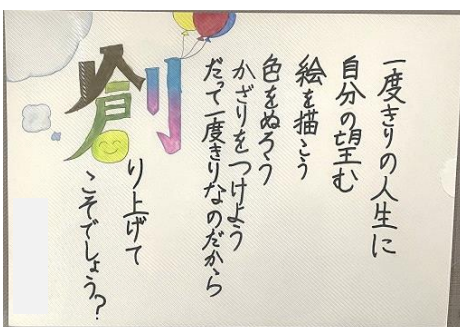 一度きりの人生に
自分の望む
絵を描こう
色をぬろう
かざりをつけよう
だって一度きりなのだから
創り上げて
こそでしょう?